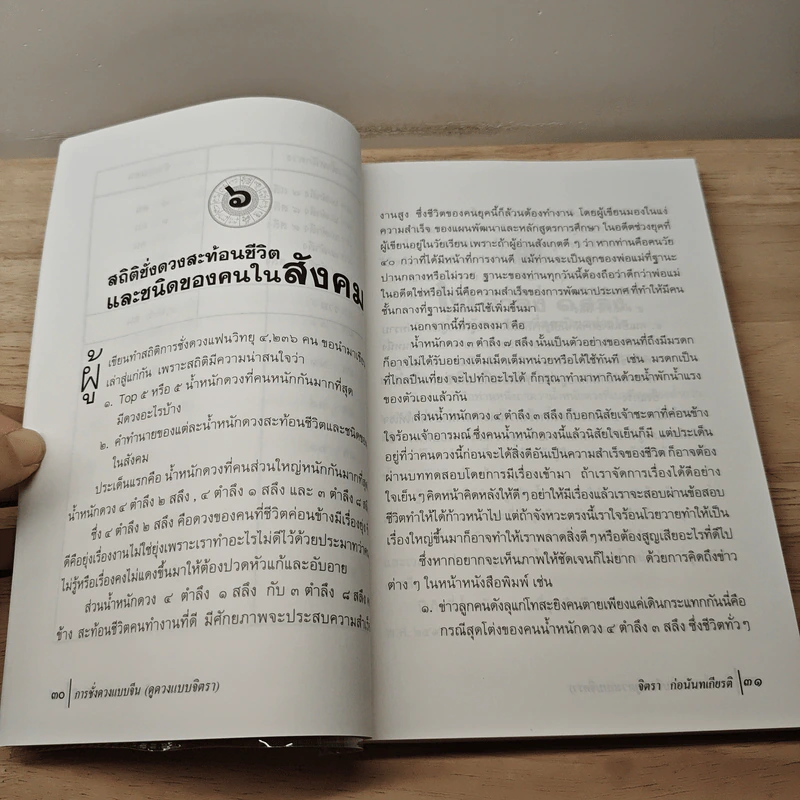 ๖
สถิติชั่งดวงสะท้อนชีวิต
และชนิดของคนในสังคม
ผู้เขียนทำสถิติการชั่งดวงแฟนวิทยุ ๔,๒๓๖ คน ขอนำมาเขียน
เล่าสู่แก่กัน เพราะสถิติมีความน่าสนใจว่า
๑. Top ๕ หรือ ๕ น้ำหนักดวงที่คนหนักกันมากที่สุด
มีดวงอะไรบ้าง
๒. คำทำนายของแต่ละน้ำหนักดวงสะท้อนชีวิตและชนิดของ
ในสังคม
ประเด็นแรกคือ น้ำหนักดวงที่คนส่วนใหญ่หนักกันมากที่สุด
น้ำหนักดวง ๔ ตำลึง ๒ สลึง , ๔ ตำลึง ๑ สลึง และ ๓ ตำลึง ๘ สลึง
ซึ่ง ๔ ตำลึง ๒ สลึง คือดวงของคนที่ชีวิตค่อนข้างมีเรื่องยุ่ง
ดีคือยุ่งเรื่องงานไม่ใช่ยุ่งเพราะเราทำอะไรไม่ดีไว้ด้วยประมาทว่า
ไม่รู้หรือเรื่องคงไม่แดงขึ้นมาให้ต้องปวดหัวแก้และอับอาย
ส่วนน้ำหนักดวง ๔ ตำลึง ๑ สลึง กับ ๓ ตำลึง ๘ สลึง
ข้าง สะท้อนชีวิตคนทำงานที่ดี มีศักยภาพจะประสบความสำเร็จ
๓๐ การชั่งดวงแบบจีน (ดูดวงแบบจิตรา)
งานสูง ซึ่งชีวิตของคนยุคนี้ก็ล้วนต้องทำงาน โดยผู้เขียนมองในแง่
ความสำเร็จ ของแผนพัฒนาและหลักสูตรการศึกษา ในอดีตช่วงยุคที่
ผู้เขียนอยู่ในวัยเรียน เพราะถ้าผู้อ่านสังเกตดี ๆ ว่า หากท่านคือคนวัย
๔๐ กว่าที่ได้มีหน้าที่การงานดี แม้ท่านจะเป็นลูกของพ่อแม่ที่ฐานะ
ปานกลางหรือไม่รวย ฐานะของท่านทุกวันนี้ต้องถือว่าดีกว่าพ่อแม่
ในอดีตใช่หรือไม่ นี่คือความสำเร็จของการพัฒนาประเทศ ที่ทำให้มีคน
ชั้นกลางที่ฐานะมีกินมีใช้เพิ่มขึ้นมา
นอกจากนี้ที่รองลงมา คือ
น้ำหนักดวง ๓ ตำลึง ๗ สลึง นั่นเป็นตัวอย่างของคนที่ถึงมีมรดก
ก็อาจไม่ได้รับอย่างเต็มเม็ดเต็มหน่วยหรือได้ใช้ทันที เช่น มรดกเป็น
ที่ไกลปืนเที่ยง จะไปทำอะไรได้ ก็กรุณาทำมาหากินด้วยน้ำพักน้ำแรง
ของตัวเองแล้วกัน
ส่วนน้ำหนักดวง ๔ ตำลึง ๓ สลึง ก็บอกนิสัยเจ้าชะตาที่ค่อนข้าง
ใจร้อนเจ้าอารมณ์ ซึ่งคนน้ำหนักดวงนี้แล้วนิสัยใจเย็นก็มี แต่ประเด็น
อยู่ที่ว่าคนดวงนี้ก่อนจะได้สิ่งดีอันเป็นความสำเร็จของชีวิต ก็อาจต้อง
ผ่านบททดสอบโดยการมีเรื่องเข้ามา ถ้าเราจัดการเรื่องได้ดีอย่าง
ใจเย็นๆ คิดหน้าคิดหลังให้ดีๆ อย่าให้มีเรื่องแล้วเราจะสอบผ่านข้อสอบ
ชีวิตทำให้ได้ก้าวหน้าไป แต่ถ้าจังหวะตรงนี้เราใจร้อนโวยวายทำให้เป็น
เรื่องใหญ่ขึ้นมาก็อาจทำให้เราพลาดสิ่งดีๆ หรือต้องสูญเสียอะไรที่ดีไป
ซึ่งหากอยากจะเห็นภาพให้ชัดเจนก็ไม่ยาก ด้วยการคิดถึงข่าว
ต่าง ๆ ในหน้าหนังสือพิมพ์ เช่น
๑. ข่าวลูกคนดังลุแก่โทสะยิงคนตายเพียงแค่เดินกระแทกกันนี่คือ
กรณีสุดโต่งของคนน้ำหนักดวง ๔ ตำลึง ๓ สลึง ซึ่งชีวิตทั่วๆ
จิตรา ก่อนันทเกียรติ ๓๑